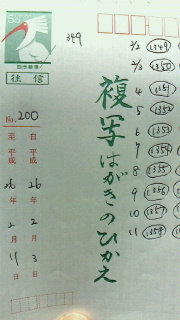 50
日本郵便
往信
349
No. 200
自 平成 26年 2月 3日
至 平成 26年 2月 11日
複写はがきのひかえ
2/2 1349
2/3 1350
4 1351
5 1352
6 1353
7 1354
8 1355
9 1356
10 1357
11 1358